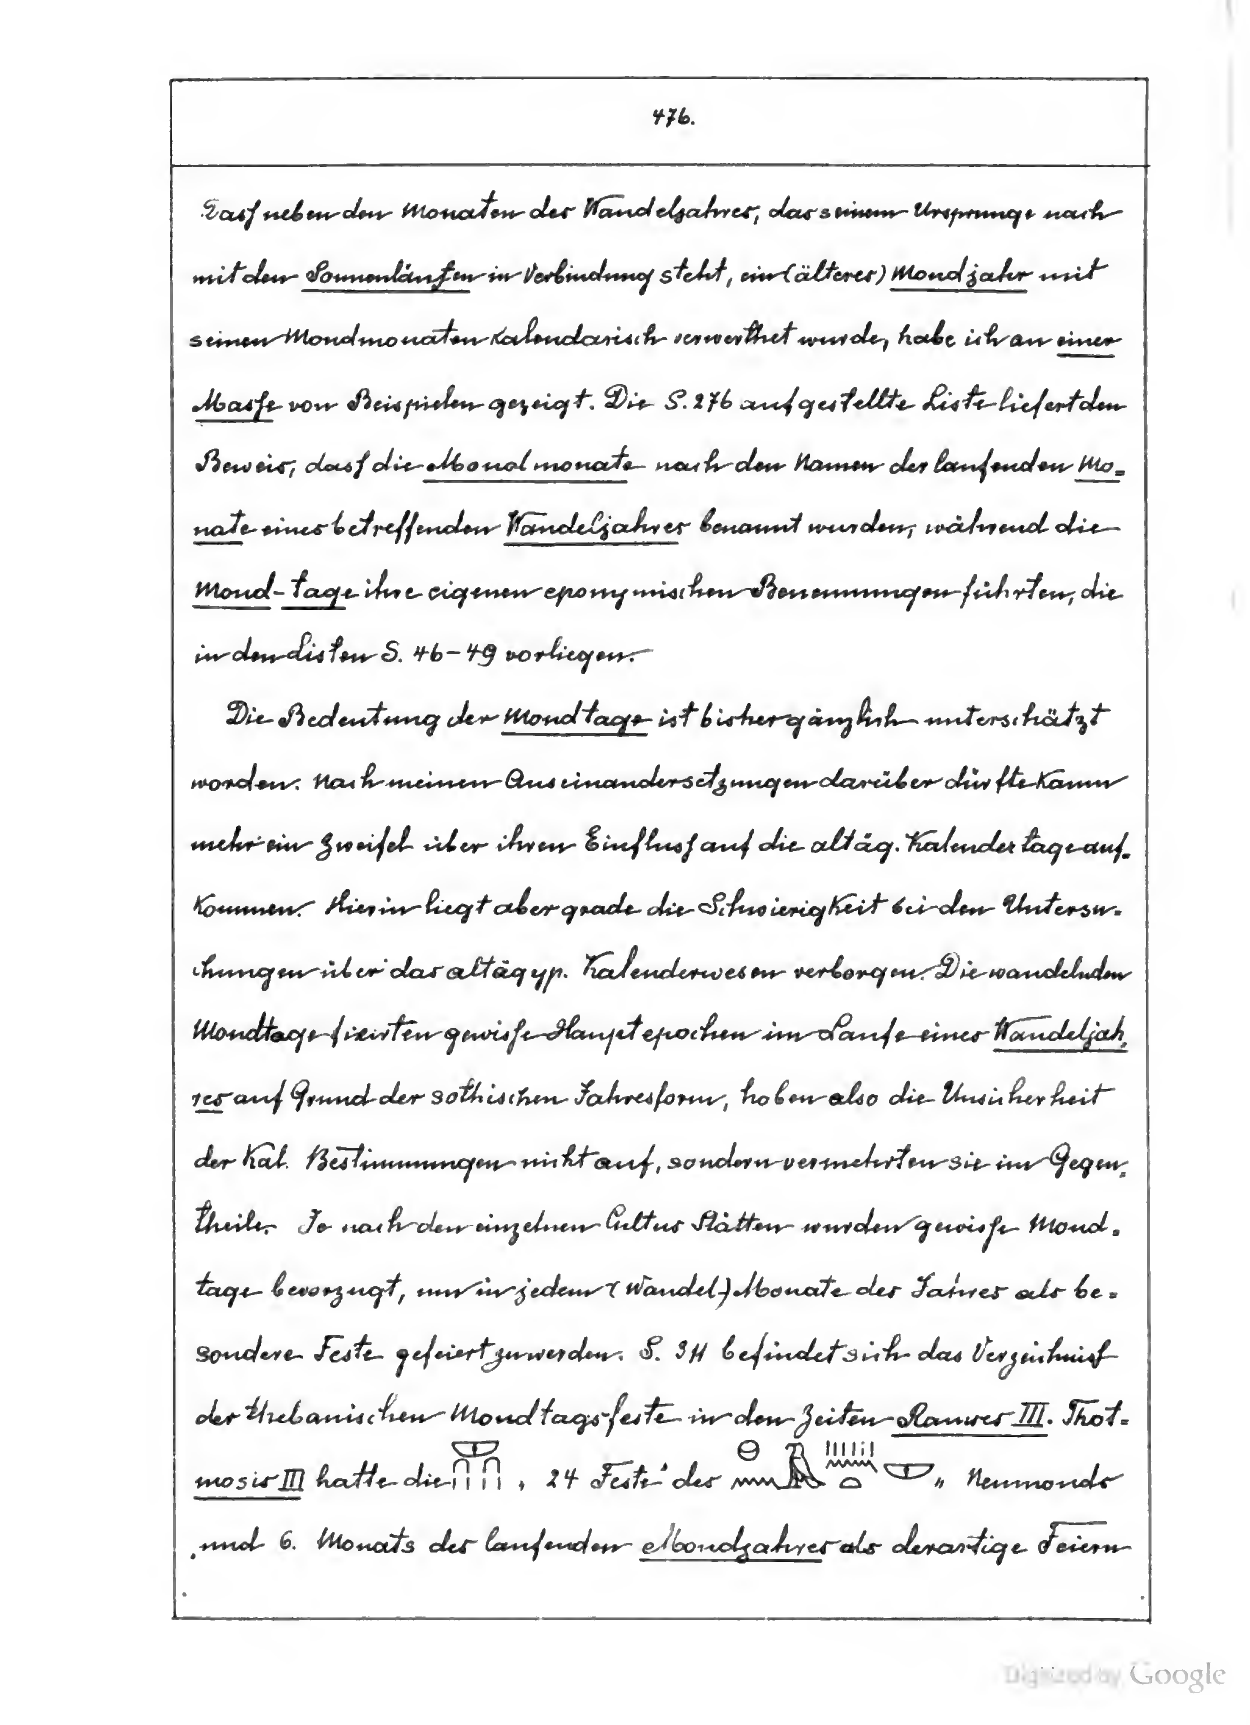 476.
Dass neben den Monaten des Wandeljahres, das seinem Ursprunge nach
mit den Sonnenläufen in Verbindung steht, ein (älteres) Mondjahr mit
seinen Mondmonaten kalendarisch verwerthet wurde, habe ich an einer
Masse von Beispielen gezeigt. Die S. 276 aufgestellte Liste liefert den
Beweis, dass die Mondmonate nach den Namen der laufenden Mo-
nate eines betreffenden Wandeljahres benannt wurden, während die
Mond-tage ihre eigenen eponymischen Benennungen führten, die
in den Listen S. 46-49 vorliegen.
Die Bedeutung der Mondtage ist bisher gänzlich unterschätzt
worden. Nach meinen Auseinandersetzungen darüber dürfte kaum
mehr ein Zweifel über ihren Einfluss auf die altäg. Kalendertage auf-
kommen. Hierin liegt aber grade die Schwierigkeit bei den Untersu-
chungen über das altägyp. Kalenderwesen verborgen. Die wandelnden
Mondtage fixirten gewisse Hauptepochen im Laufe eines Wandeljah-
res auf Grund der sothischen Jahresform, hoben also die Unsicherheit
der Kal. Bestimmungen nicht auf, sondern vermehrten sie im Gegen-
theile. Je nach den einzelnen Cultus Stätten wurden gewisse Mond-
tage bevorzugt, um in jedem (Wandel-) Monate des Jahres als be-
sondere Feste gefeiert zu werden. S. 311 befindet sich das Verzeichniss
der thebanischen Mondtagsfeste in den Zeiten Ramses III. Thot-
mosis III hatte die „ 24 Feste des „ Neumonds
und 6. Monats des laufenden Mondjahres als derartige Feiern
Digitized by Google